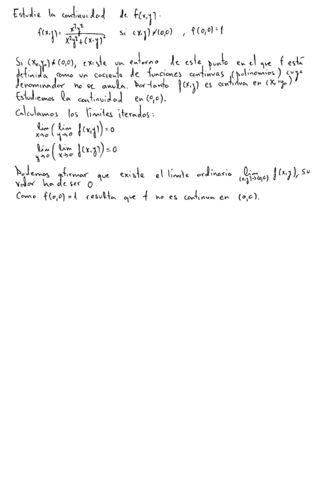 Estudie la continuidad de f(x,y).
f(x,y) = x²y² / (x²y² + (x-y)²) si (x,y) ≠ (0,0), f(0,0) = 1
Si (x₀,y₀) ≠ (0,0), existe un entorno de este punto en el que f está
definida como un cociente de funciones continuas (polinomios) cuyo
denominador no se anula. Por tanto f(x,y) es continua en (x₀,y₀).
Estudiemos la continuidad en (0,0).
Calculamos los límites iterados:
lim x→0 (lim y→0 f(x,y)) = 0
lim y→0 (lim x→0 f(x,y)) = 0
Podemos afirmar que existe el límite ordinario lim (x,y)→(0,0) f(x,y), su
valor ha de ser 0.
Como f(0,0)=1 resulta que f no es continua en (0,0).